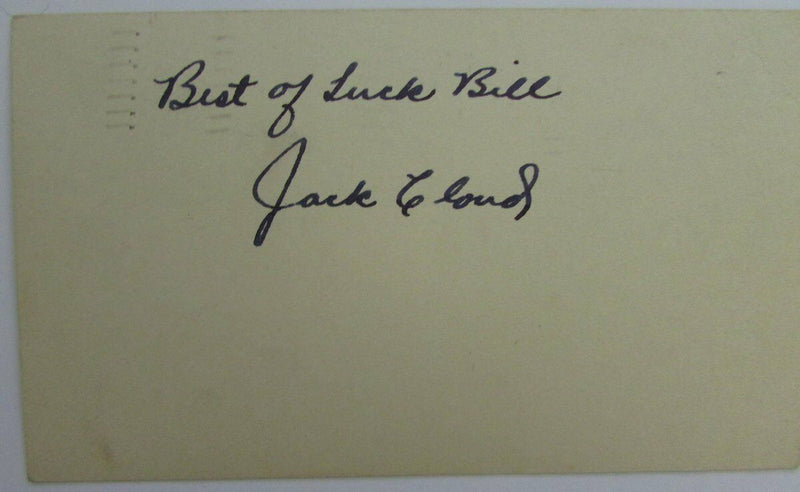 Best of Luck Bill
Jack Cloud